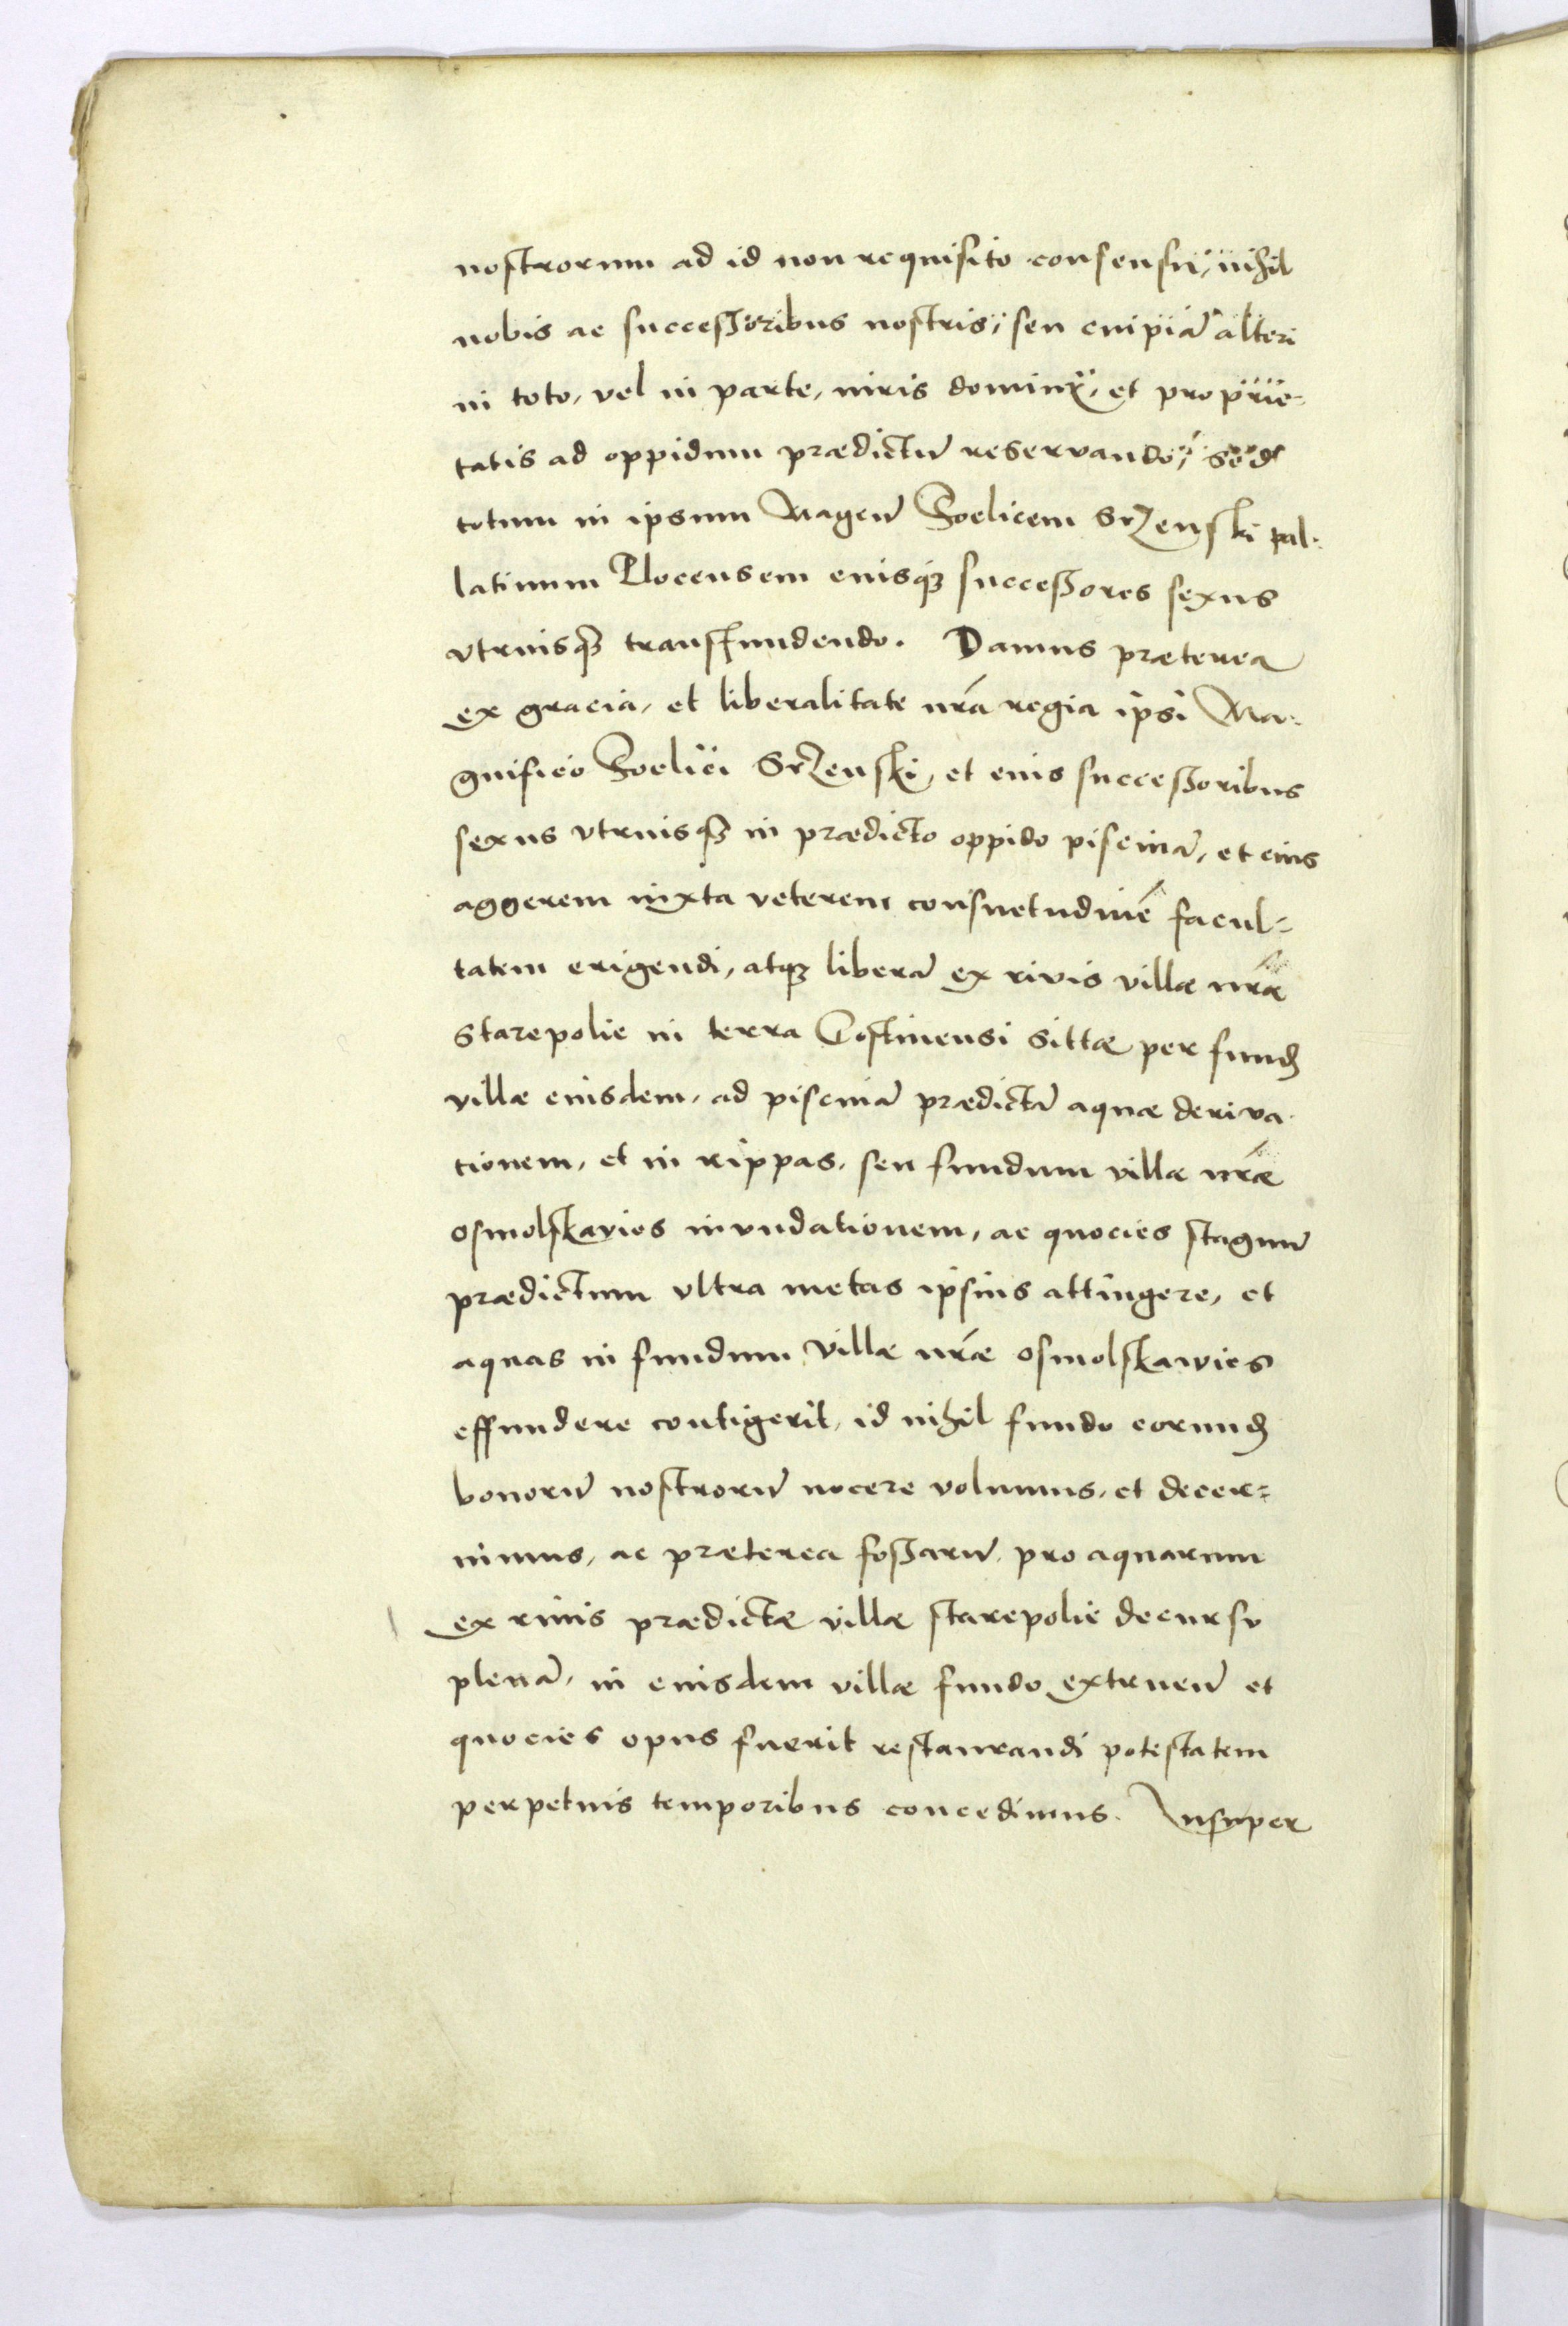 nostrorum ad id non requisito consensu, nihil
nobis ac successoribus nostris, seu cuipiā alteri
in toto, vel in parte, iuris dominÿ, et proprie-
tatis ad oppidum prædictū reservando, sed
totum in ipsum Magcū Foelicem Srzenski pal-
latinum Plocensem eiusq3 successores sexus
vtriusq3 transfundendo. Damus præterea
ex gracia, et liberalitate nrā regia ipsi Ma-
gnifico Foelici Srzenski, et eius successoribus
sexus vtriusq3 in prædicto oppido piscinā, et eius
aggerem iuxta veterem consuetudinē facul-
tatem erigendi, atq3 liberā ex rivis villæ nræ
Starepolie in terra Gostinensi sittæ per fund
villæ eiusdem, ad piscinā prædictā aquæ deriva-
tionem, et in rippas, seu fundum villæ nræ
Osmolskavies invndationem, ac quocies stagnū
prædictum vltra metas ipsius attingere, et
aquas in fundum villæ nræ Osmolskawies
effundere contigerit, id nihil fundo eorund
bonorū nostrorū nocere volumus, et decer-
nimus, ac præterea fossarū pro aquarum
ex riuis prædictæ villæ starepolie decursv
plenā, in eiusdem villæ fundo extruen̄ et
quocies opus fuerit restaurandi potestatem
perpetuis temporibus concedimus. Insuper